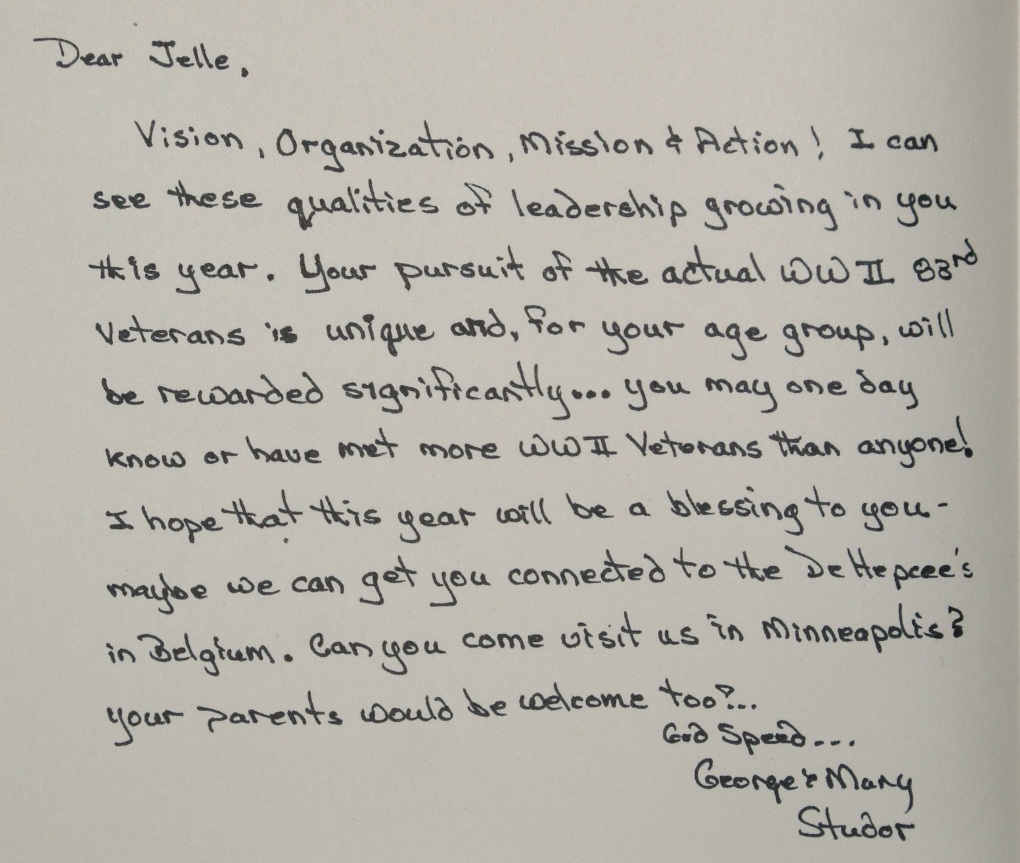 Dear Jelle,
Vision, Organization, Mission & Action! I can
see these qualities of leadership growing in you
this year. Your pursuit of the actual WWII 83rd
Veterans is unique and, for your age group, will
be rewarded significantly... you may one day
know or have met more WWII Veterans than anyone!
I hope that this year will be a blessing to you -
maybe we can get you connected to the DeHepcee's
in Belgium. Can you come visit us in Minneapolis?
Your parents would be welcome too?...
God Speed...
George & Mary
Studor